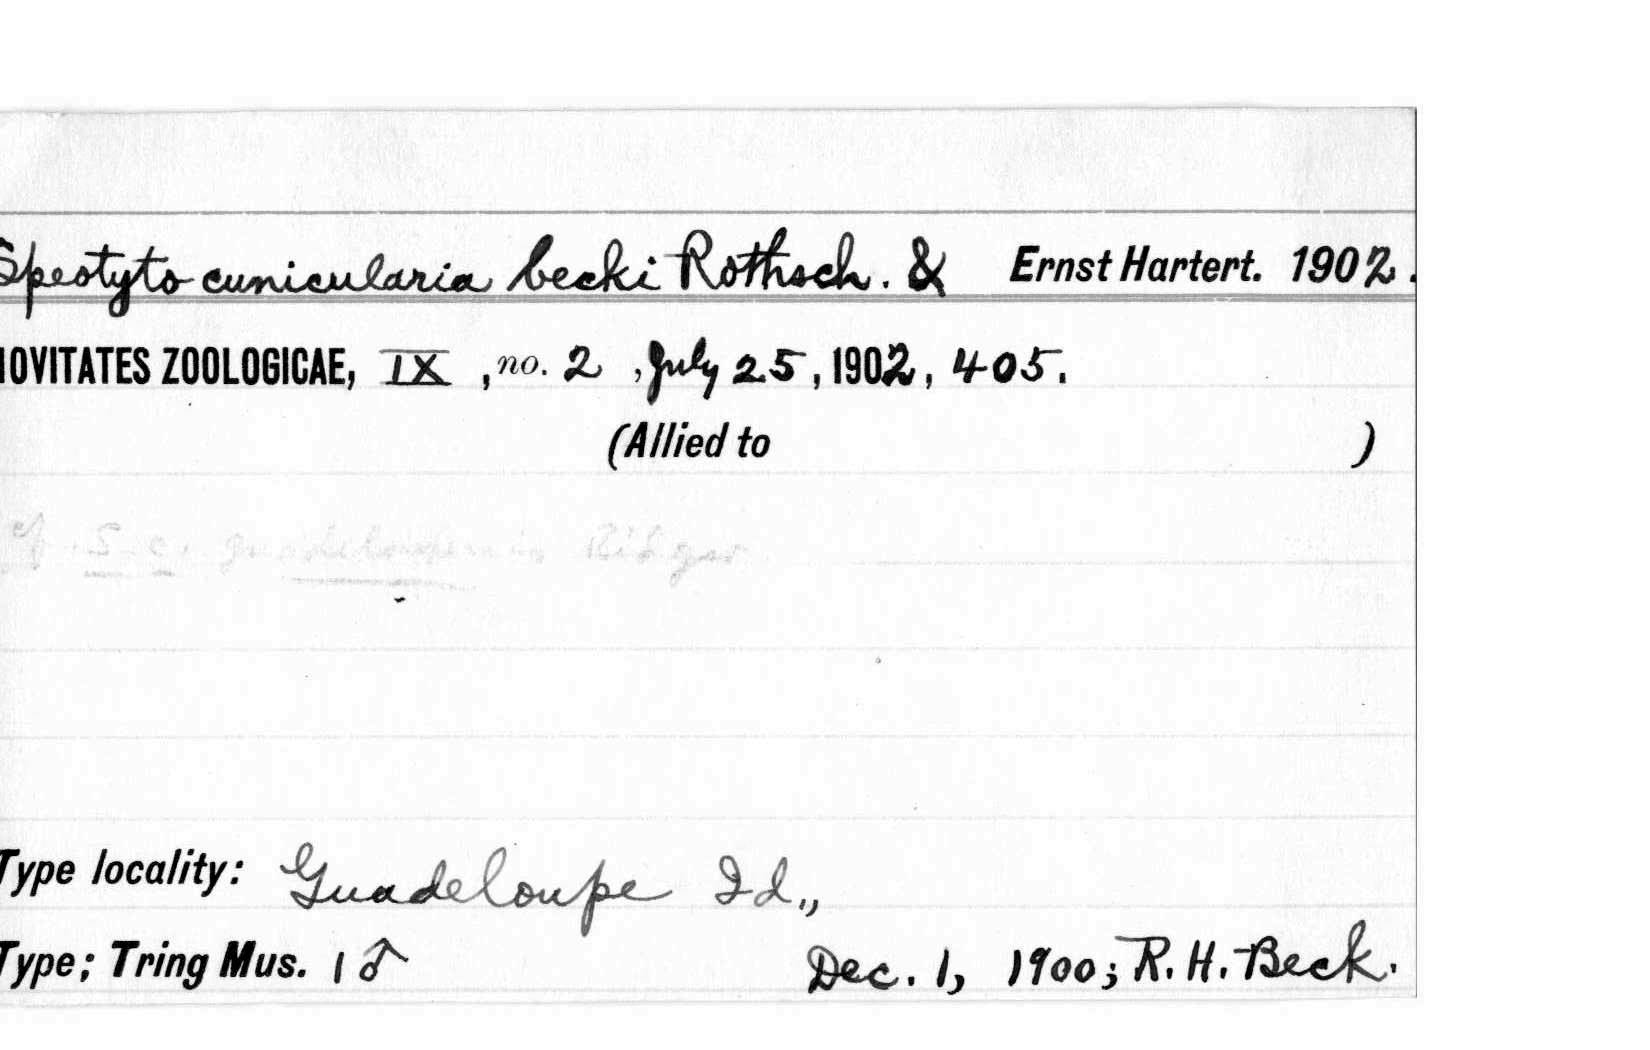 Speotyto cunicularia becki Rothsch. & Ernst Hartert. 1902.
NOVITATES ZOOLOGICAE, IX, no. 2, July 25, 1902, 405.
(Allied to )
cf. S. c. guadeloupensis Ridgw
Type locality: Guadeloupe Id.,
Type; Tring Mus. 1 ♂ Dec. 1, 1900; R. H. Beck.